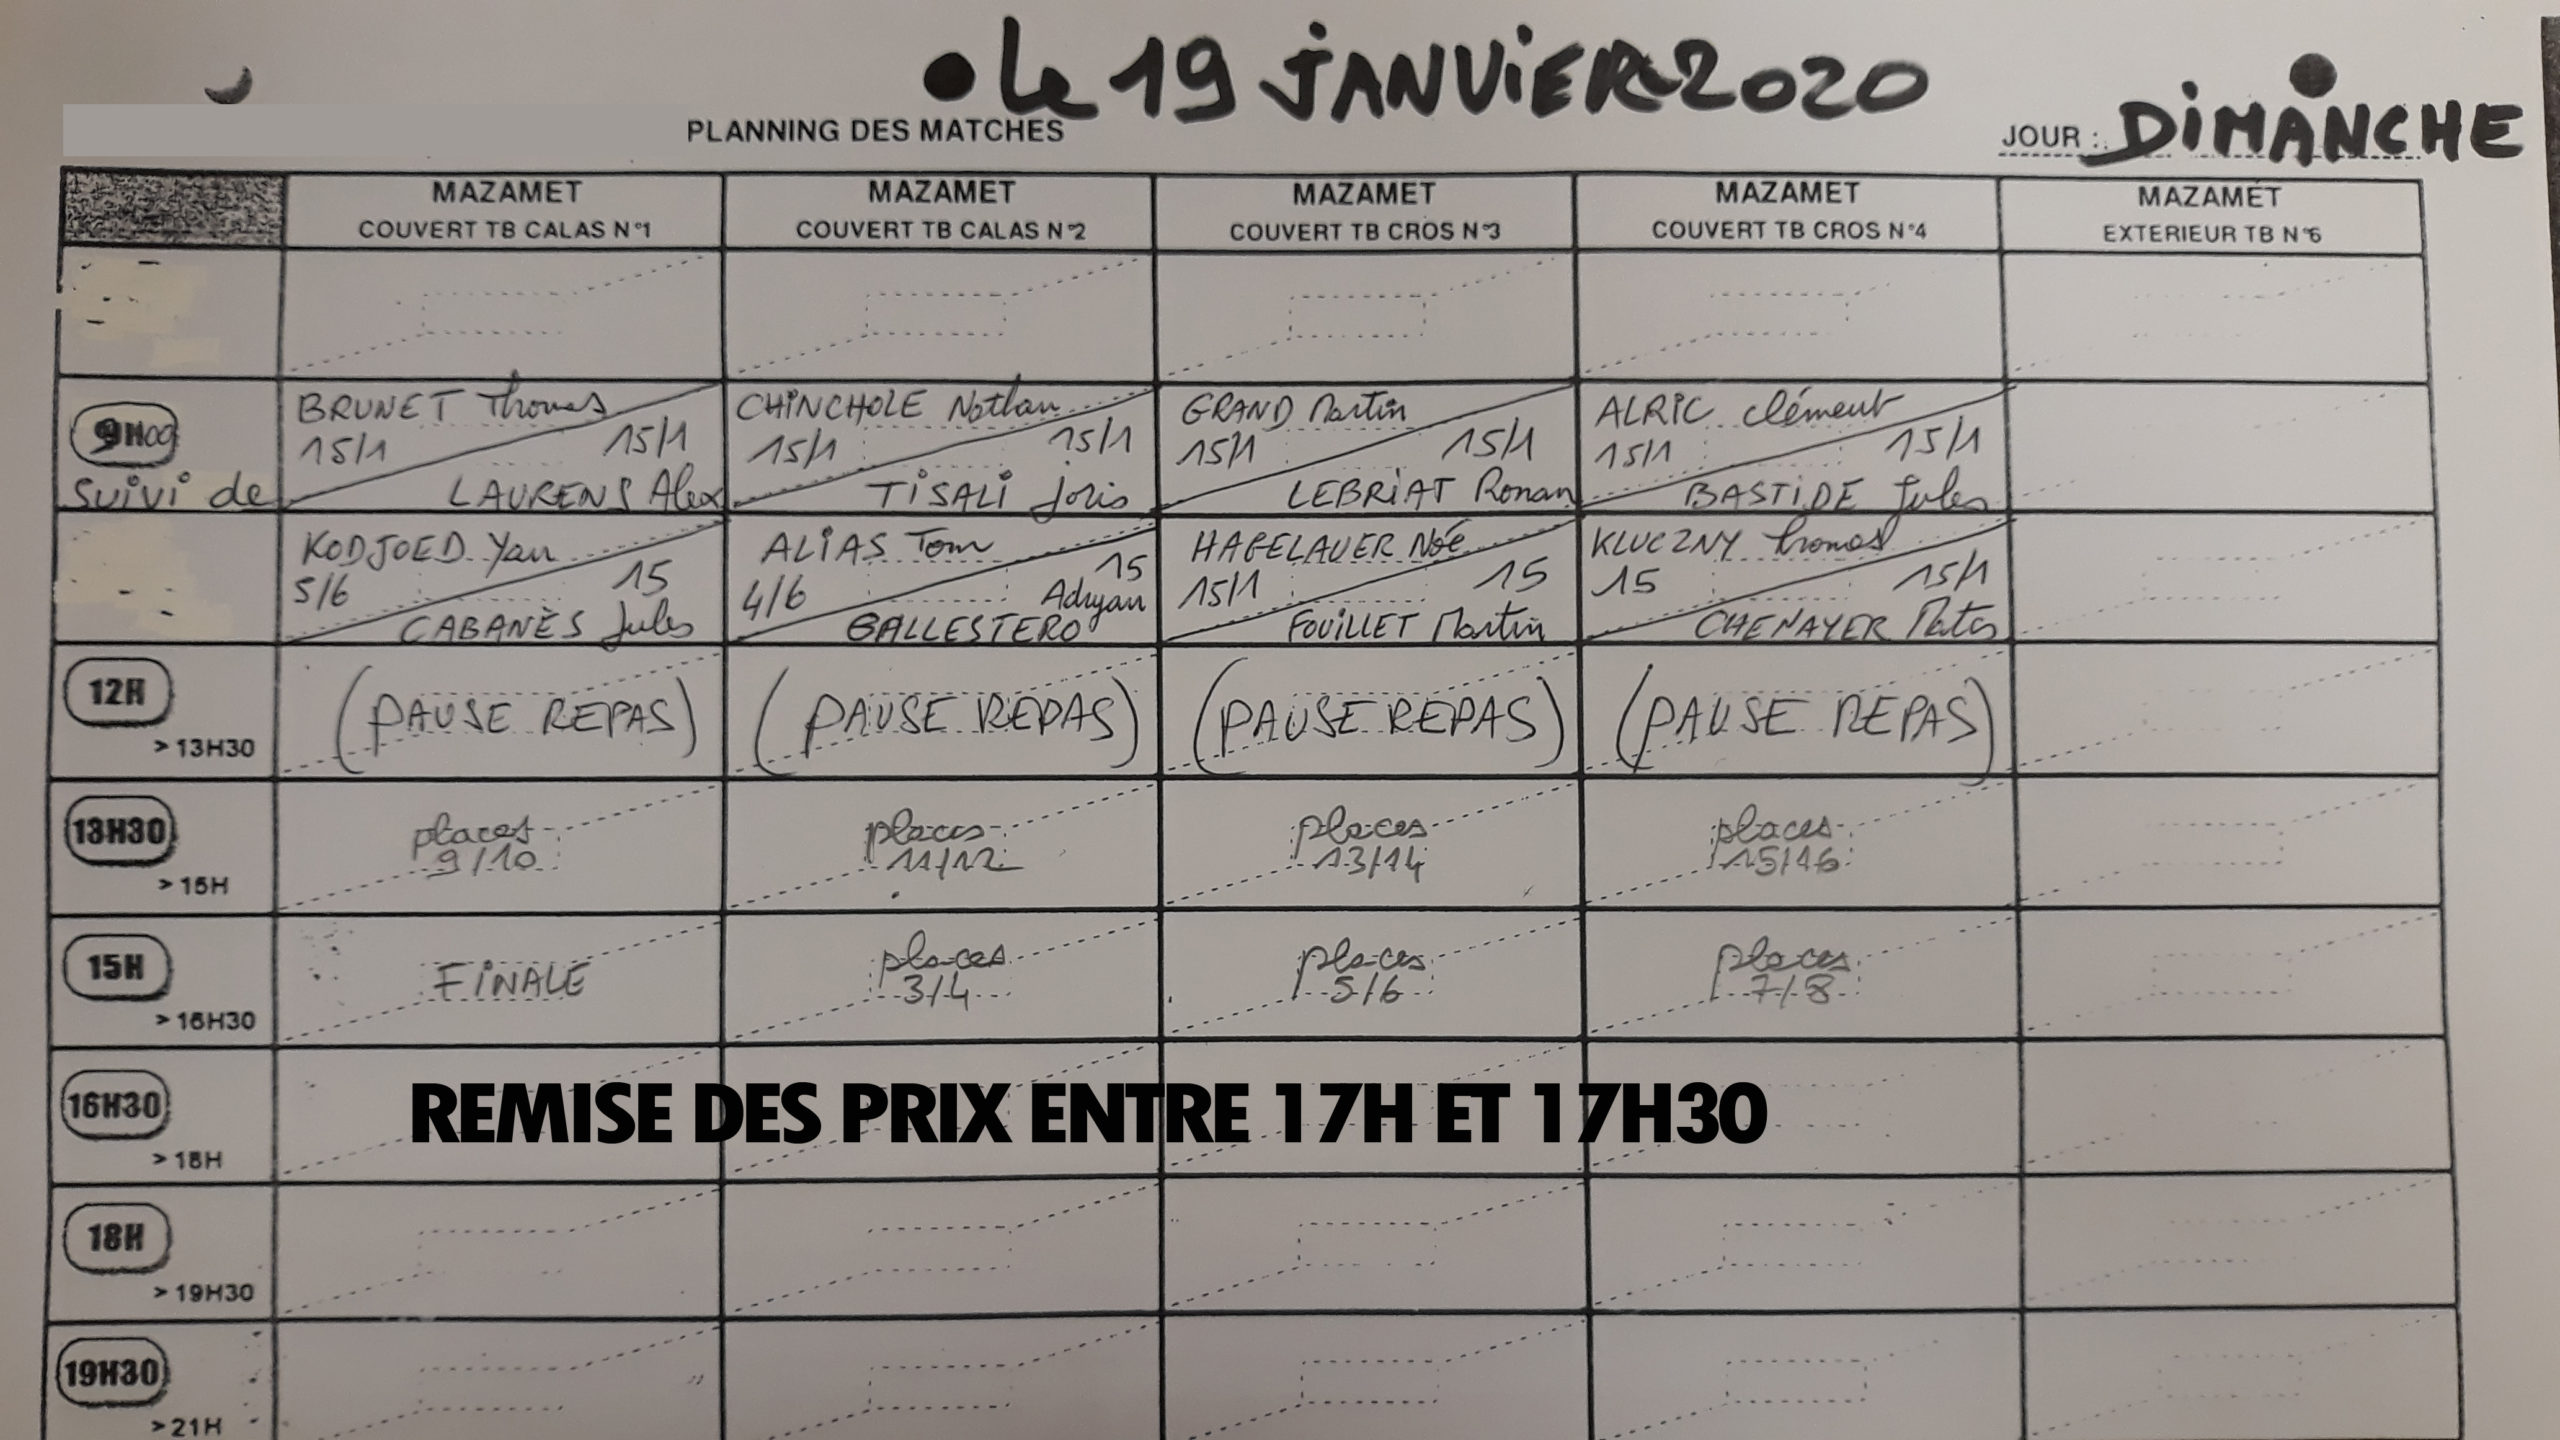 • Le 19 JANVIER 2020
PLANNING DES MATCHES
JOUR : DIMANCHE
MAZAMET
COUVERT TB CALAS N°1
MAZAMET
COUVERT TB CALAS N°2
MAZAMET
COUVERT TB CROS N°3
MAZAMET
COUVERT TB CROS N°4
MAZAMET
EXTERIEUR TB N°6
9H00
Suivi de
BRUNET Thomas
15/1 15/1
LAURENS Alex
CHINCHOLE Nathan
15/1 15/1
TISALI Joris
GRAND Martin
15/1 15/1
LEBRIAT Ronan
ALRIC Clément
15/1 15/1
BASTIDE Jules
KODJOED Yan
5/6 15
CABANÈS Jules
ALIAS Tom
4/6 15
Adryan
BALLESTERO
HAGELAUER Noé
15/1 15
FOUILLET Martin
KLUCZNY Thomas
15 15/1
CHENAYER
12H
> 13H30
(PAUSE REPAS)
(PAUSE REPAS)
(PAUSE REPAS)
(PAUSE REPAS)
13H30
> 15H
places
9/10
places
11/12
places
13/14
places
15/16
15H
> 16H30
FINALE
places
3/4
places
5/6
places
7/8
16H30
> 18H
REMISE DES PRIX ENTRE 17H ET 17H30
18H
> 19H30
19H30
> 21H